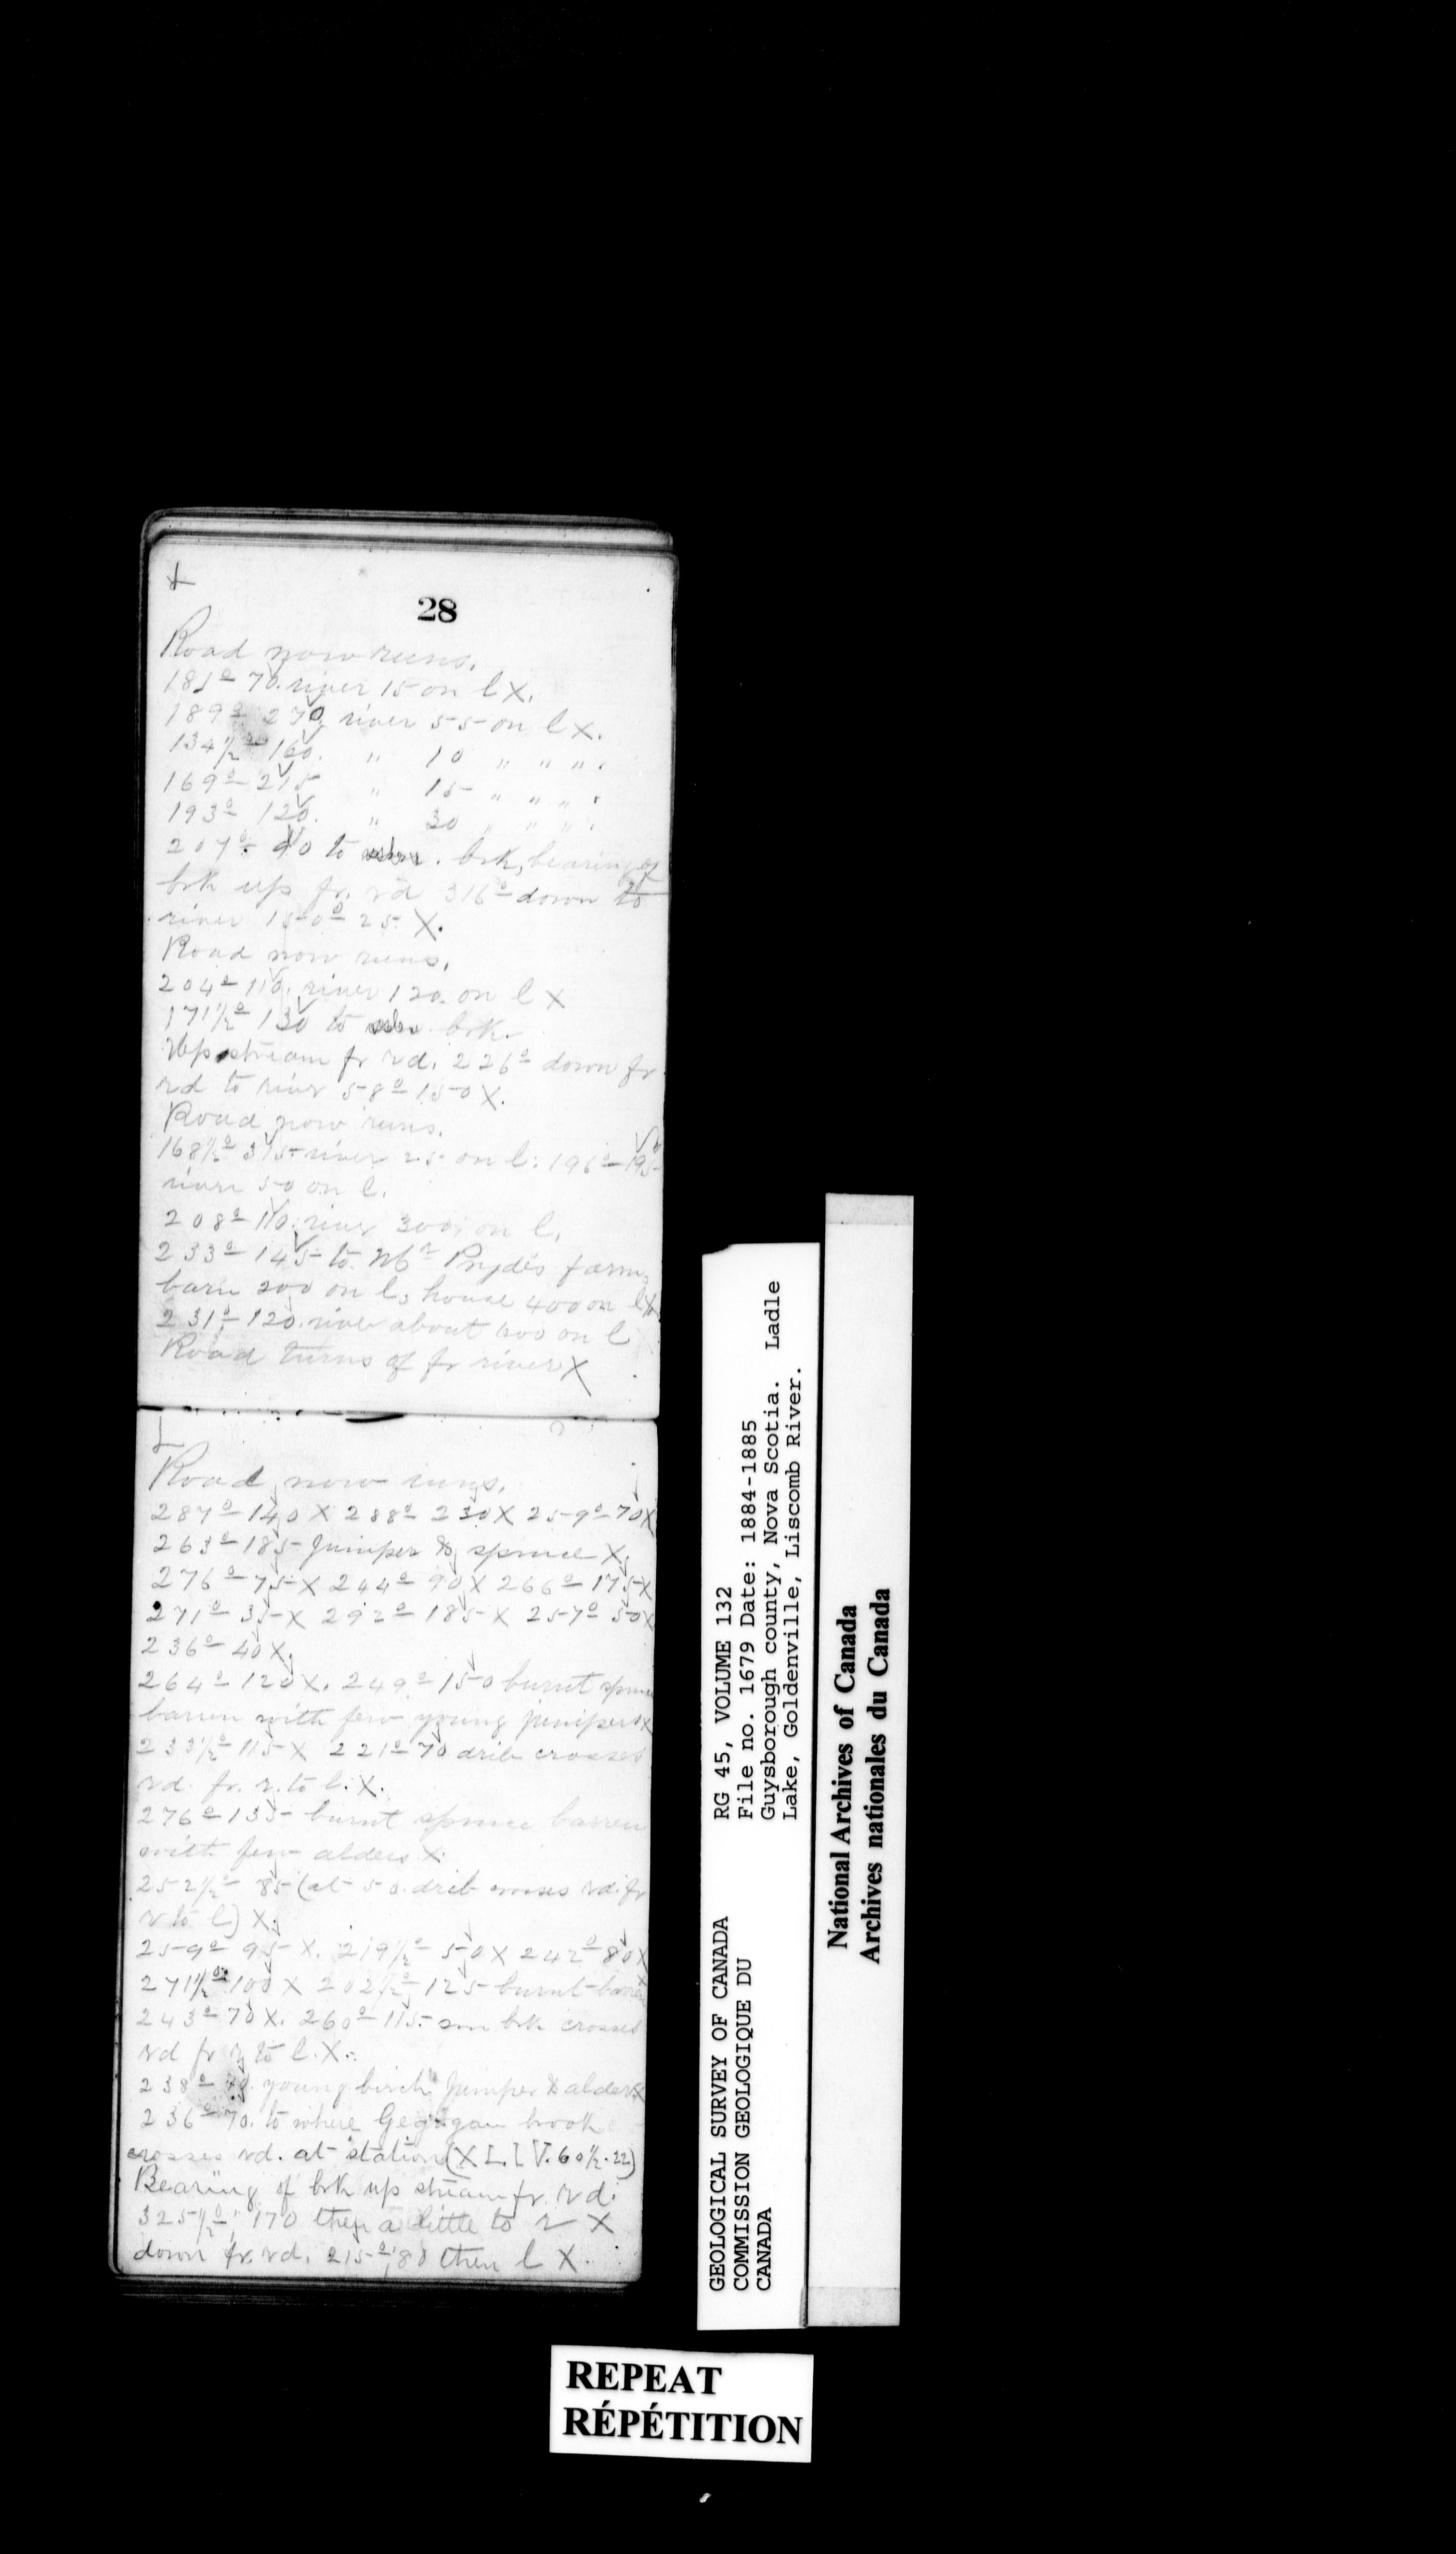 28
Road now runs.
181° 70. river 15 on l X.
189° 270, river 55 on l X.
134½° 160. " 10 " " " .
169° 215 " 15 " " " .
193° 120. " 30 " " " .
207° 90 to . brk, bearing of
brk up fr. rd 316° down to
river 150° 25. X.
Road now runs.
204° 110. river 120. on l X
171½° 130 to brk.
Up stream fr rd. 226° down fr
rd to river 58° 150 X.
Road now runs.
168½° 315. river 25 on l. 196° 195
river 50 on l.
208° 110. river 300. on l.
233° 145 to Pryde's farm,
barn 200 on l, house 400 on l X
231° 120. river about 600 on l
Road turns of fr river X
Road now runs.
287° 140 X 288° 230 X 259° 70 X
263° 185 Juniper & spruce X.
276° 75 X 244° 90 X 266° 175 X
271° 35 X 292° 185 X 257° 50 X
236° 40 X.
264° 120 X. 249° 150 burnt spruce
barren with few young junipers X
233½° 115 X 221° 70 drib crosses
rd. fr. r. to l. X.
276° 135 burnt spruce barren
with few alders X.
252½° 85 (at 50. drib crosses rd. fr
r to l) X.
259° 95 X. 219½° 50 X 242° 80 X
271½° 100 X 202½° 125 burnt barren
243° 70 X. 260° 115. sm brk crosses
rd fr r to l. X.
238° young birch Juniper & alders X
236° 70. to where Gegogan brook
crosses rd. at station (X L. I V. 60½. 22)
Bearing of brk up stream fr. rd.
325½°, 170 then a little to r X
down fr. rd. 215°, 80 then l X.
GEOLOGICAL SURVEY OF CANADA
COMMISSION GEOLOGIQUE DU
CANADA
RG 45, VOLUME 132
File no. 1679 Date: 1884-1885
Guysborough county, Nova Scotia. Ladle
Lake, Goldenville, Liscomb River.
National Archives of Canada
Archives nationales du Canada
REPEAT
RÉPÉTITION